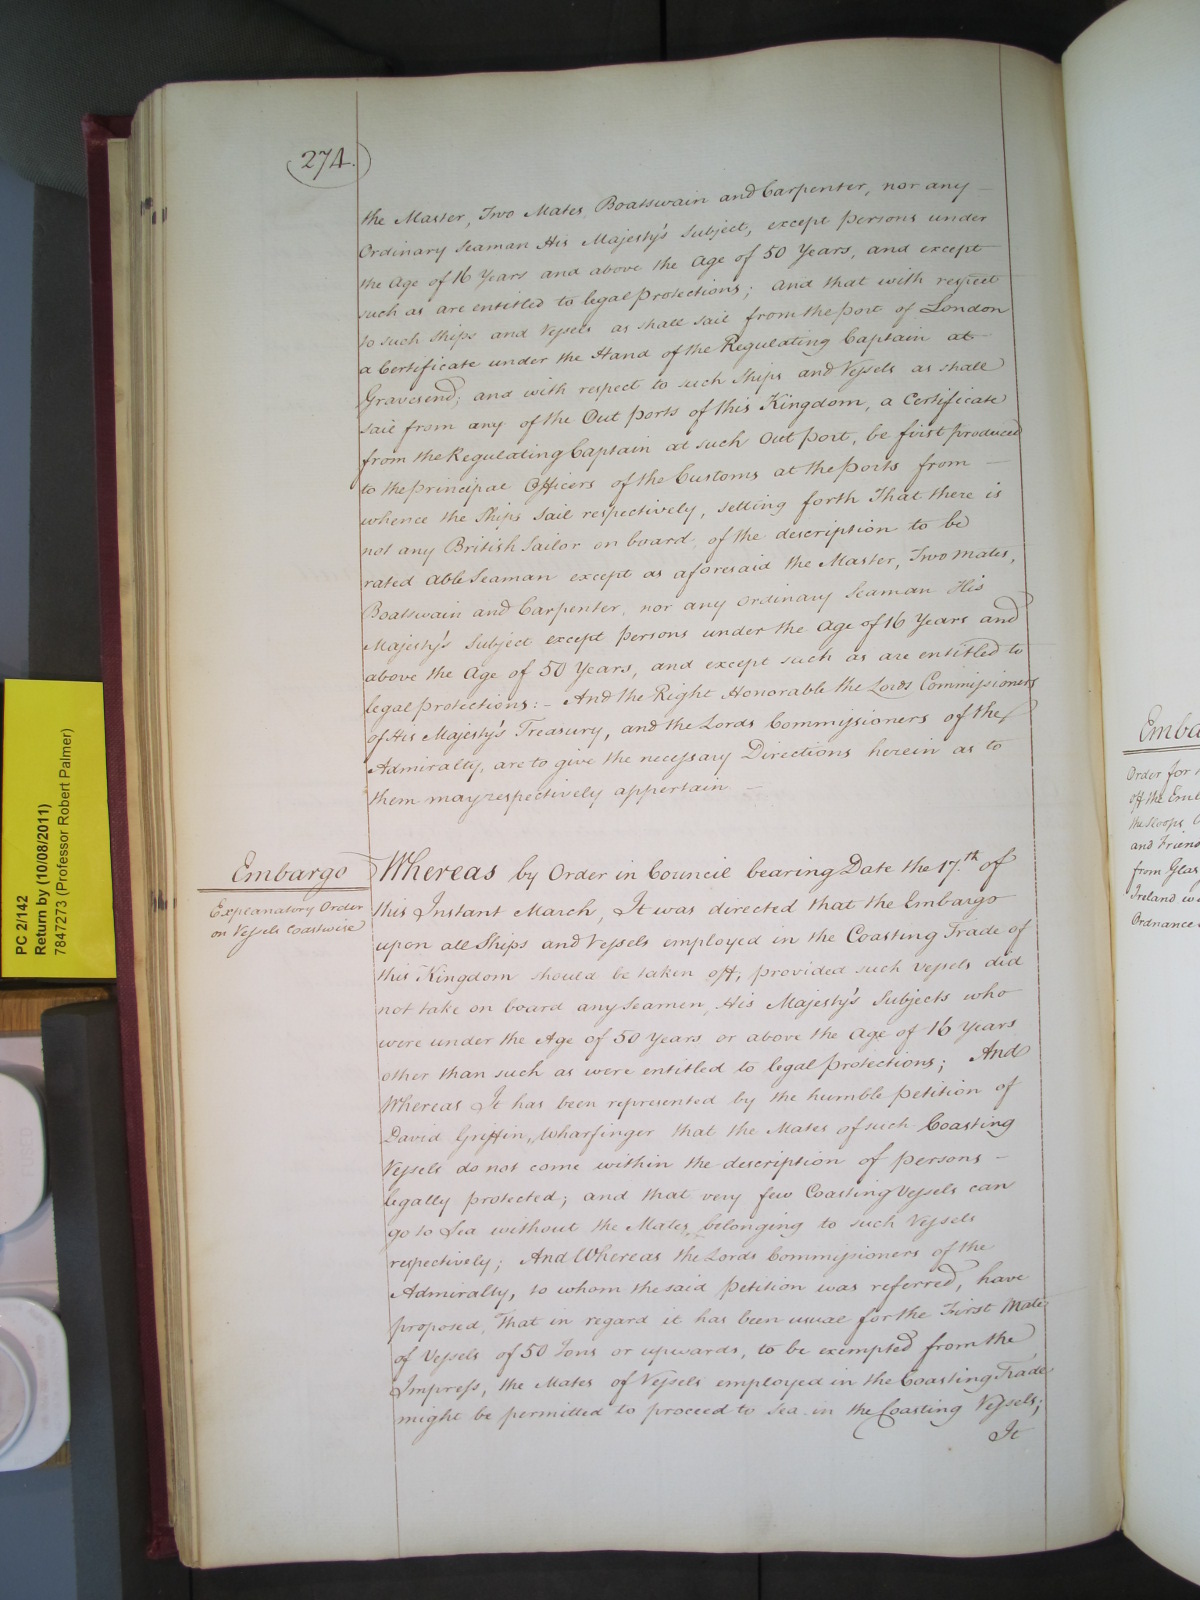 274.
the Master, Two Mates, Boatswain and Carpenter, nor any –
Ordinary Seaman His Majesty's Subject, except persons under
the Age of 16 Years and above the Age of 50 Years, and except
such as are entitled to legal protections; And that with respect
to such Ships and Vessels as shall sail from the port of London
a Certificate under the Hand of the Regulating Captain at
Gravesend; and with respect to such Ships and Vessels as shall
sail from any of the Out ports of this Kingdom, a Certificate
from the Regulating Captain at such Out port, be first produced
to the principal Officers of the Customs at the ports from –
whence the Ships Sail respectively, setting forth That there is
not any British Sailor on board, of the description to be
rated able Seaman except as aforesaid the Master, Two Mates,
Boatswain and Carpenter, nor any Ordinary Seaman His
Majesty's Subject except persons under the Age of 16 Years and
above the Age of 50 Years, and except such as are entitled to
legal protections: – And the Right Honorable the Lords Commissioners
of His Majesty's Treasury, and the Lords Commissioners of the
Admiralty, are to give the necessary Directions herein as to
them may respectively appertain –
Embargo
Explanatory Order
on Vessels Coastwise
Whereas by Order in Council bearing Date the 17.th of
this Instant March, It was directed that the Embargo
upon all Ships and Vessels employed in the Coasting Trade of
this Kingdom should be taken off, provided such Vessels did
not take on board any Seamen, His Majesty's Subjects who
were under the Age of 50 Years or above the Age of 16 Years
other than such as were entitled to legal protections; And
Whereas It has been represented by the humble petition of
David Griffin, Wharfinger that the Mates of such Coasting
Vessels do not come within the description of persons –
legally protected; and that very few Coasting Vessels can
go to Sea without the Mates, belonging to such Vessels
respectively; And Whereas the Lords Commissioners of the
Admiralty, to whom the said petition was referred, have
proposed, That in regard it has been usual for the First Mate
of Vessels of 50 Tons or upwards, to be exempted from the
Impress, the Mates of Vessels employed in the Coasting Trade
might be permitted to proceed to Sea in the Coasting Vessels;
It
PC 2/142
Return by (10/08/2011)
7847273 (Professor Robert Palmer)
Emba
Order for
off the Em
the Sloops
and Frien
from Glas
Ireland w
Ordnance